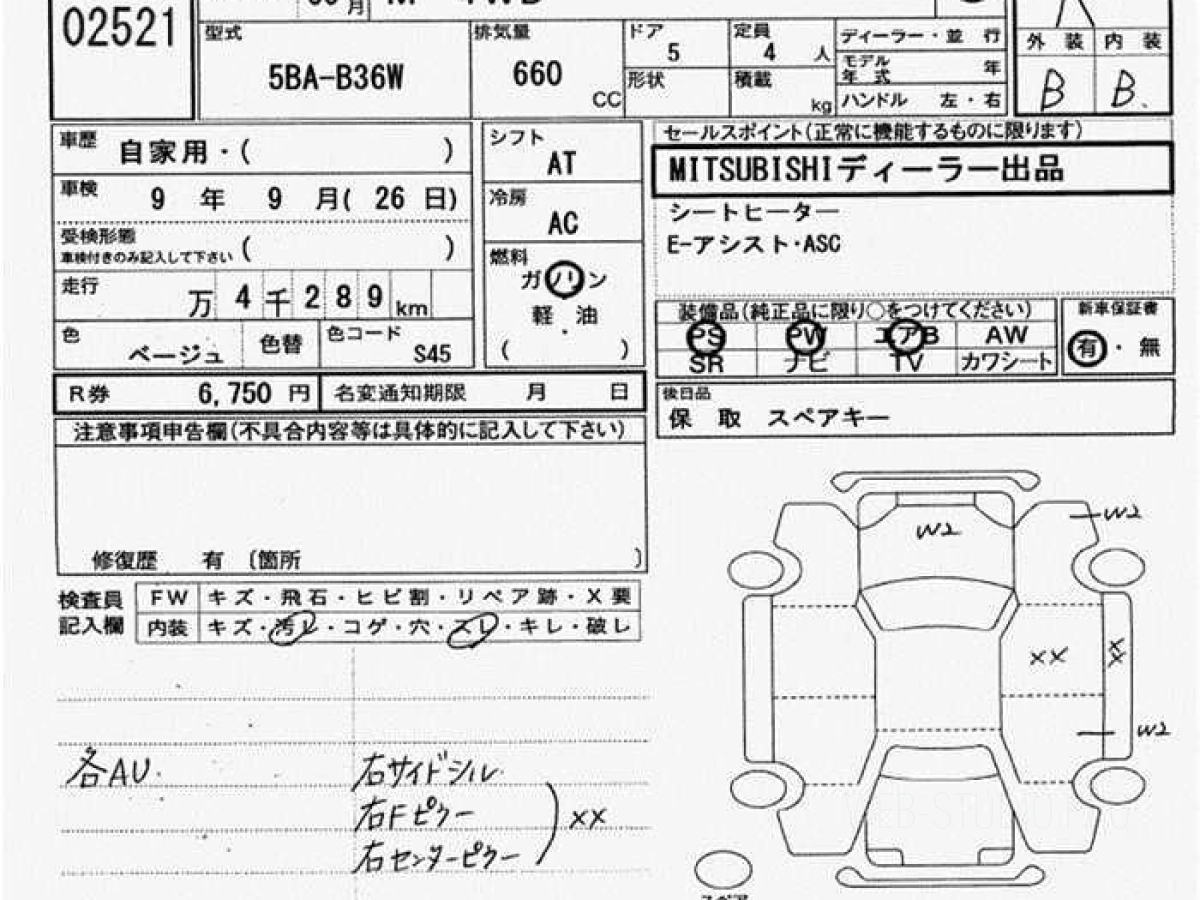 02521
月 M 4WD
型式 5BA-B36W
排気量 660 CC
ドア 5
形状
定員 4 人
積載 kg
ディーラー・並 行
モデル年式 年
ハンドル 左・右
R
外 装 内 装
B B
車歴 自家用・( )
車検 9 年 9 月( 26 日)
受検形態
車検付きのみ記入して下さい ( )
走行 万 4 千 2 8 9 km
色 ベージュ 色替 色コード S45
シフト
AT
冷房
AC
燃料
ガソリン
軽・油
( )
セールスポイント(正常に機能するものに限ります)
MITSUBISHIディーラー出品
シートヒーター
E-アシスト・ASC
装備品(純正品に限り○をつけてください)
PS PW エアB AW
SR ナビ TV カワシート
新車保証書
有・無
R券 6,750 円 名変通知期限 月 日
後日品
保 取 スペアキー
注意事項申告欄(不具合内容等は具体的に記入して下さい)
修復歴 有 〔箇所 〕
検査員
記入欄
FW キズ・飛石・ヒビ割・リペア跡・X要
内装 キズ・汚レ・コゲ・穴・スレ・キレ・破レ
各AU.
右サイドシル
右Fピラー
右センターピラー
XX
W2
W2
XX
XX
W2
スペア